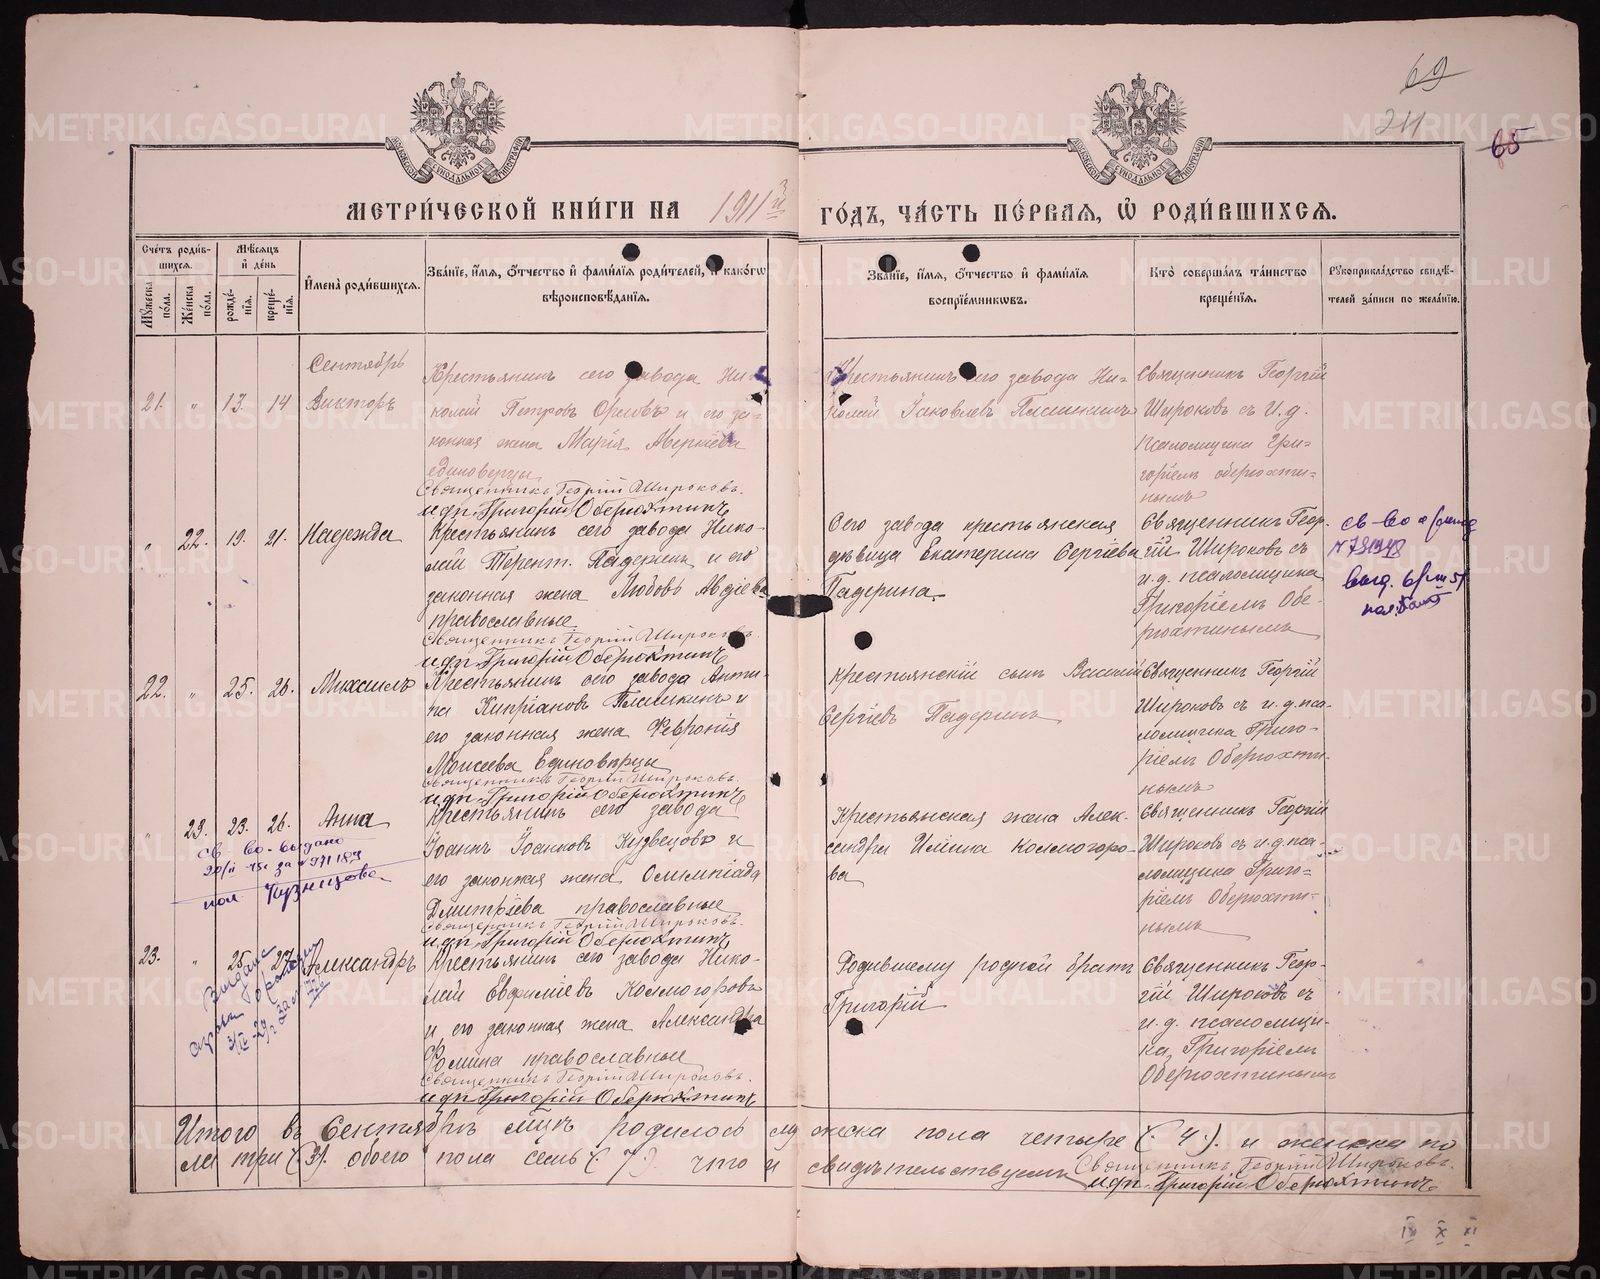 69
24
65
МЕТРИ́ЧЕСКОЙ КНИ́ГИ НА 1911й ГО́ДЪ, ЧА́СТЬ ПЕ́РВАѦ, Ѽ РОДИ́ВШИХСѦ.
Сче́тъ роди́в-
шихсѧ.
Мꙋ́жеска
по́ла.
Же́нска
по́ла.
Мѣ́сѧцъ
и҆ де́нь
рожде́-
нїѧ.
креще́-
нїѧ.
И҆мена̀ роди́вшихсѧ.
Зва́нїе, и҆́мѧ, ѻ҆́тчество и҆ фами́лїѧ роди́телей, и҆ како́гѡ
вѣроисповѣ́данїѧ.
Зва́нїе, и҆́мѧ, ѻ҆́тчество и҆ фами́лїѧ
воспрїе́мникѡвъ.
Кто̀ соверша́лъ та́инство
креще́нїѧ.
Рꙋкоприкла́дство свидѣ́-
телей за́писи по жела́нїю.
Сентябрь
21. " 13. 14 Викторъ
Крестьянинъ сего завода Ни-
колай Петровъ Орловъ и его за-
конная жена Марія Аверкіева
единоверцы
Священникъ Георгій Широковъ.
и.д.п. Григорій Оберюхтинъ
Крестьянинъ сего завода Ни-
колай Іаковлевъ Плишкинъ
Священникъ Георгій
Широковъ съ и.д.
псаломщика Гри-
горіемъ Оберюхти-
нымъ
" 22. 19. 21. Надежда
Крестьянинъ сего завода Нико-
лай Терент. Падеринъ и его
законная жена Любовь Авдіева
православные
Священникъ Георгій Широковъ.
и.д.п. Григорій Оберюхтинъ
Сего завода крестьянская
дѣвица Екатерина Сергіева
Падерина.
Священникъ Геор-
гій Широковъ съ
и.д. псаломщика
Григоріемъ Обе-
рюхтинымъ
св-во о
выд.
22. " 25. 26. Михаилъ
Крестьянинъ сего завода Анти-
па Кипріановъ Плишкинъ и
его законная жена Февронія
Моисеева Единовѣрцы
Священникъ Георгій Широковъ.
и.д.п. Григорій Оберюхтинъ
Крестьянскій сынъ Василій
Сергіевъ Падеринъ
Священникъ Георгій
Широковъ съ и.д. пса-
ломщика Григо-
ріемъ Оберюхти-
нымъ
" 23. 23. 26. Анна
св-во выдано
пол. Кузнецова
Крестьянинъ сего завода
Іоаннъ Іоанновъ Кузнецовъ и
его законная жена Олимпіада
Дмитріева православные
Священникъ Георгій Широковъ.
и.д.п. Григорій Оберюхтинъ
Крестьянская жена Алек-
сандра Ильина Колмогоро-
ва
Священникъ Георгій
Широковъ съ и.д. пса-
ломщика Григо-
ріемъ Оберюхти-
нымъ
23. " 25. 27. Александръ
Выдана
Крестьянинъ сего завода Нико-
лай Евфиміевъ Колмогоровъ
и его законная жена Александра
Фомина православные
Священникъ Георгій Широковъ.
и.д.п. Григорій Оберюхтинъ
Родившему родной братъ
Григорій
Священникъ Геор-
гій Широковъ съ
и.д. псаломщи-
ка Григоріемъ
Оберюхтинымъ
Итого въ Сентябрѣ м-цѣ родилось мужеска пола четыре (4.) и женска по
ла три (3). обоего пола семь (7.) что и свидѣтельствуемъ Священникъ Георгій Широковъ.
и.д.п. Григорій Оберюхтинъ
IX X XI
METRIKI.GASO-URAL.RU